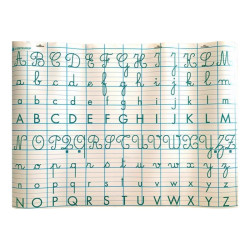 A B C D E F G H I J K L M
a b c d e f g h i j k l m
a b c d e f g h i j k l m
A B C D E F G H I J K L M
N O P Q R S T U V W X Y Z
n o p q r s t u v w x y z
n o p q r s t u v w x y z
N O P Q R S T U V W X Y Z